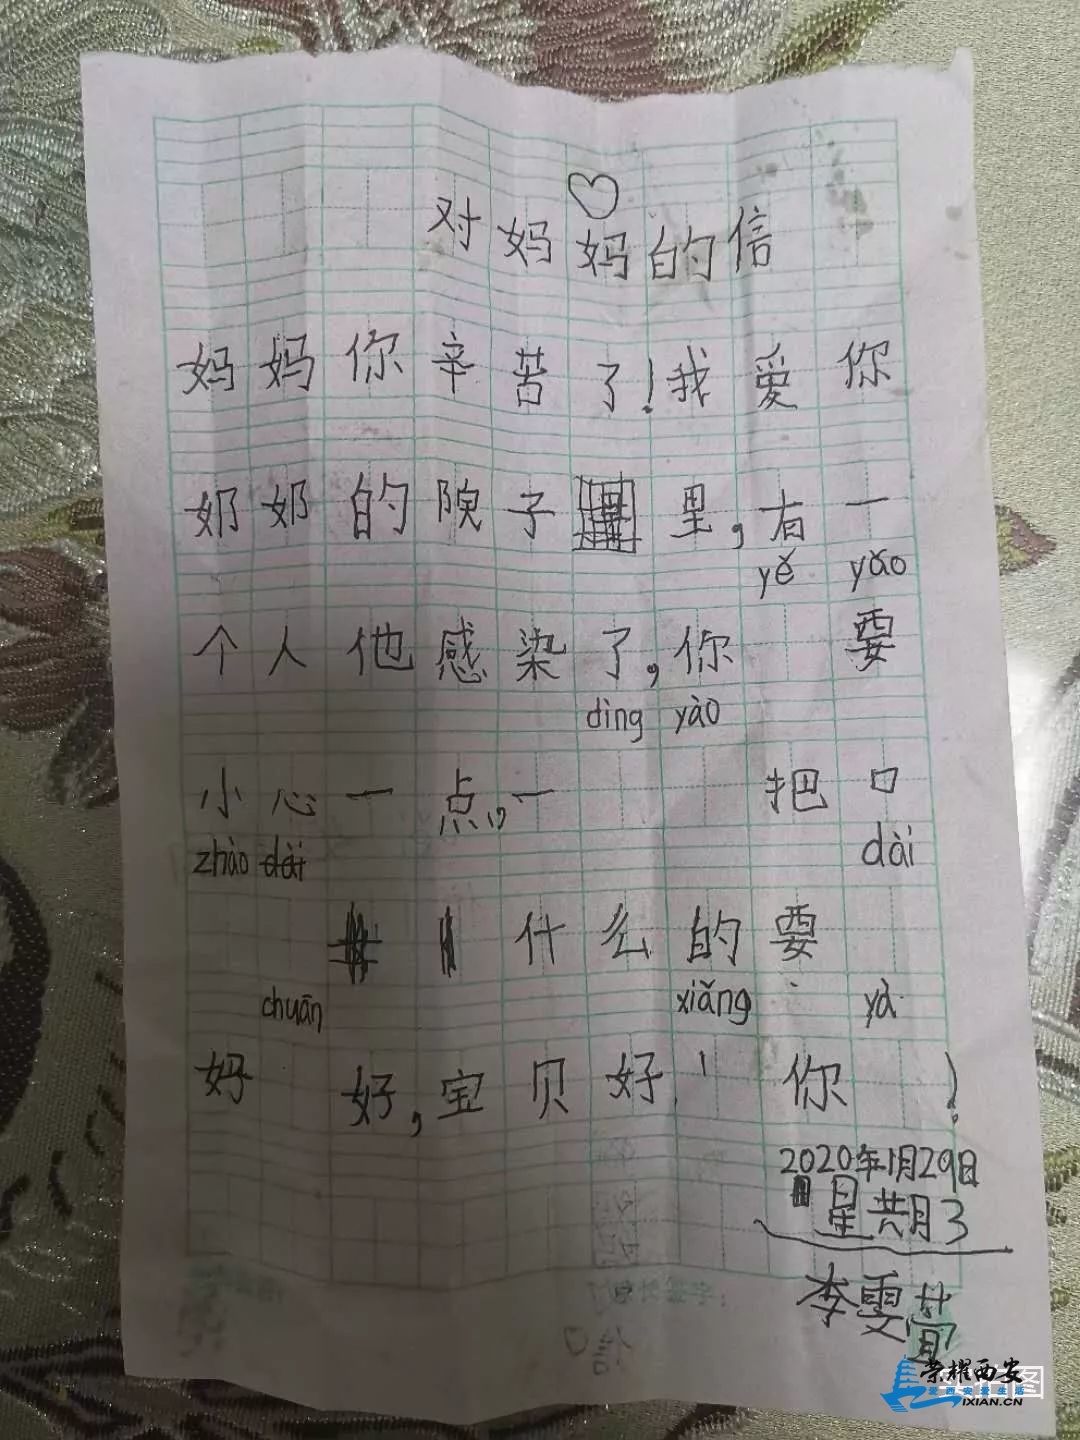 对妈妈的信
妈妈你辛苦了!我爱你
奶奶的院子里,有一
yě yǎo
个人他感染了,你 要
dìng yào
小心一点,一 把口
zhào dài dài
什么的要
chuān xiǎng yà
好,宝贝好!你 !
2020年1月29日
星期3
李雯
荣耀西安
爱西安爱生活
IXIAN.CN